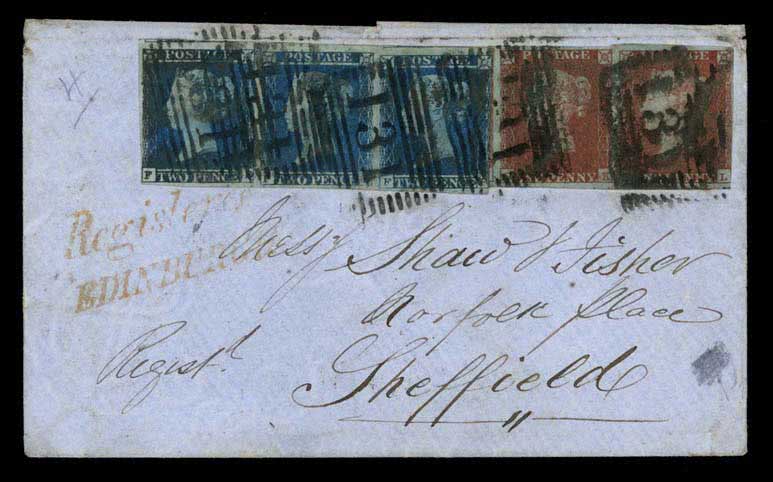 POSTAGE POSTAGE POSTAGE POSTAGE POSTAGE
131 131 131 131
TWO PENCE TWO PENCE TWO PENCE ONE PENNY ONE PENNY L
Registered
EDINBURGH
Messrs Shaw & Fisher
Norfolk Place
Registd.
Sheffield